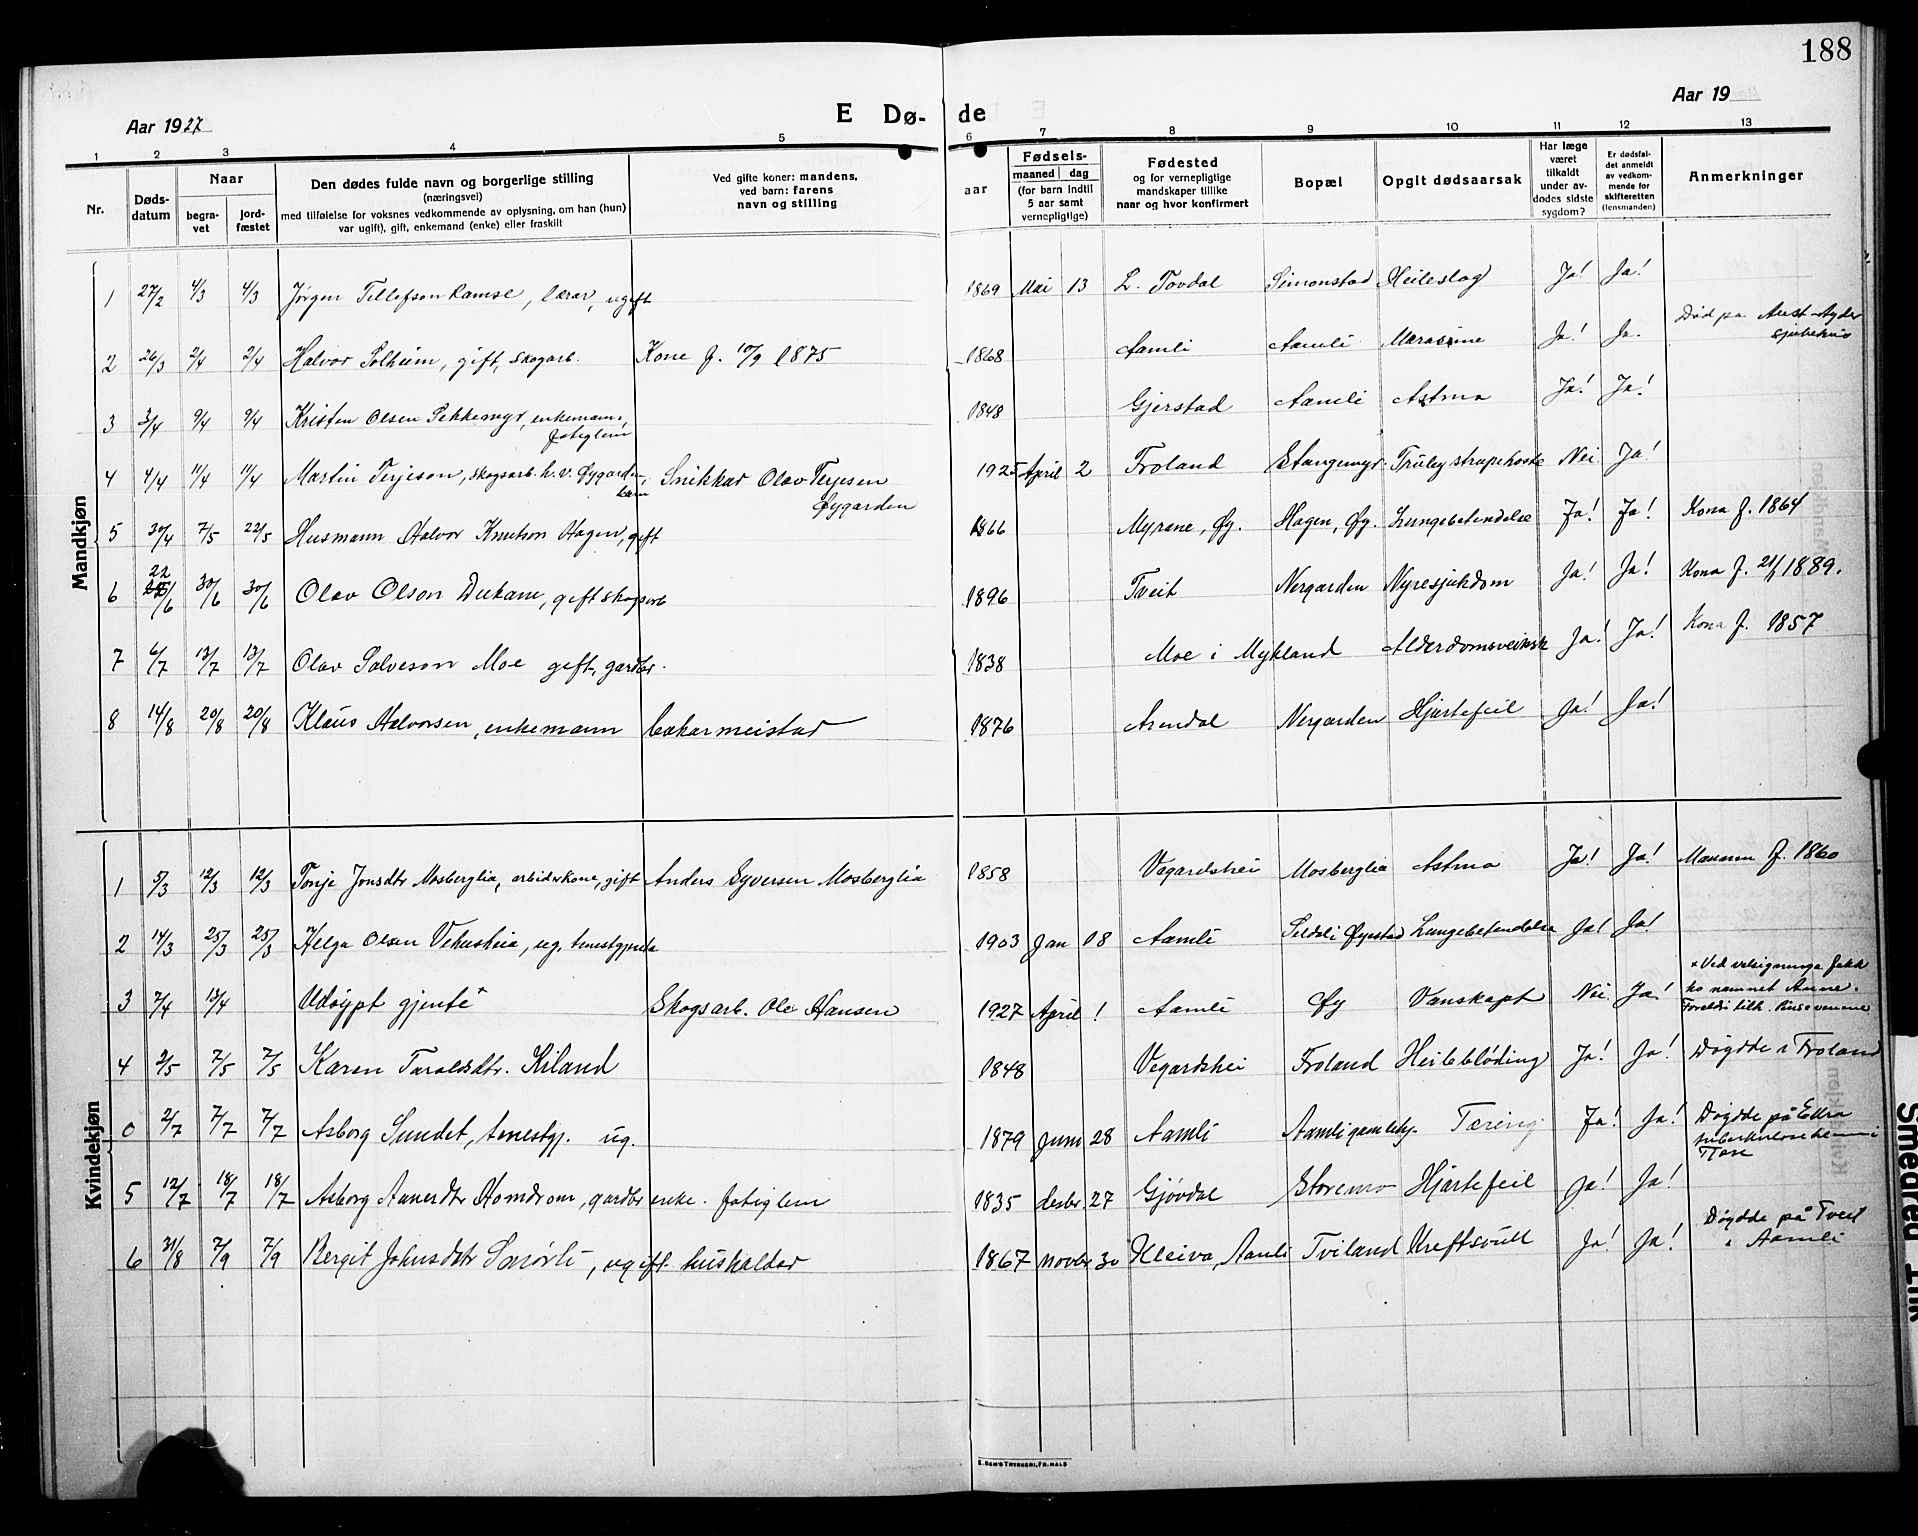 188
Aar 1927
E Dø- de
Aar 19
1 2 3 4 5 6 7 8 9 10 11 12 13
Nr.
Døds-
datum
Naar
begra-
vet
jord-
fæstet
Den dødes fulde navn og borgerlige stilling
(næringsvei)
med tilføielse for voksnes vedkommende av oplysning, om han (hun)
var ugift), gift, enkemand (enke) eller fraskilt
Ved gifte koner: mandens,
ved barn: farens
navn og stilling
aar
Fødsels-
maaned dag
(for barn indtil
5 aar samt
vernepligtige)
Fødested
og for vernepligtige
mandskaper tillike
naar og hvor konfirmert
Bopæl
Opgit dødsaarsak
Har læge
været
tilkaldt
under av-
dødes sidste
sygdom?
Er dødsfal-
det anmeldt
av vedkom-
mende for
skifteretten
(lensmanden)
Anmerkninger
Mandkjøn
1 27/2 4/3 4/3 Jørgen Tellefson Ramse, lærar, ugift 1869 Mai 13 L. Tovdal Simonstad Heileslag Ja! Ja!
2 26/3 2/4 2/4 Halvor Solheim, gift, skogarb. Kone f. 10/9 1875 1868 Aamli Aamli Marasme Ja! Ja. Død paa Aust-Agder
sjukehus
3 3/4 9/4 9/4 Kristen Olsen Sekkemyr, enkemann, 1848 Gjerstad Aamli Astma Ja! Ja!
fatiglem
4 4/4 11/4 11/4 Martin Terjeson, skogsarb. h. v. Øygarden, Snikkar Olav Terjesen 1925 April 2 Froland Stangemyr Truleg strupehoste Nei Ja!
barn Øygarden
5 30/4 7/5 22/5 Husmann Halvor Knutson Hagen, gift 1866 Myrane, Øy. Hagen, Øy. Lungebetendelse Ja! Ja! Kona f. 1864
22
6 /6 30/6 30/6 Olav Olson, gift skogsarb 1896 Tveit Nergarden Nyresjukdom Ja! Ja! Kona f. 21/1 1889.
7 6/7 13/7 13/7 Olav Salveson Moe gift, gardbr. 1838 Moe i Mykland Alderdomsveiksk Ja! Ja! Kona f. 1857
8 14/8 20/8 20/8 Klaus Halvorsen, enkemann bakarmeistar 1876 Arendal Nergarden Hjartefeil Ja! Ja!
Kvindekjøn
1 5/3 12/3 12/3 Tonje Jonsdtr Mosberglia, arbiderkone, gift Anders Syversen Mosberglia 1858 Vegardshei Mosberglia Astma Ja! Ja! Mannen f. 1860
2 14/3 25/3 25/3 Helga Olsen Vehusheia, ug. tenestgjenta 1903 Jan 18 Aamli Seldal i Øyestad Lungebetendelse Ja! Ja!
3 7/4 13/4 Udøypt gjente x Skogsarb. Ole Hansen 1927 April 1 Aamli Øy Vanskapt Nei. Ja! x Ved velsigninga fekk
ho namnet Anne.
Foreldri tilh. Pinsevenene
4 2/5 7/5 7/5 Karen Taraldsdtr. Kiland 1848 Vegardshei Froland Heilebløding Ja! Ja! Døydde i Froland
0 2/7 7/7 7/7 Asborg Sundet, tenestgj. ug. 1879 Juni 28 Aamli Aamli gamlehj. Tæring Ja! Ja! Døydde på Ellra
tuberkuloseheim i
5 12/7 18/7 18/7 Asborg Aanerdtr Homdrom, gardbr enke. fatiglem 1835 desbr. 27 Gjøvdal Storemo Hjartefeil Ja! Ja!
6 31/8 7/9 7/9 Bergit Johnsdtr Smørli, ugift hushaldar 1867 novbr 30 Kleiva, Aamli Tviland Kreftsvull Ja! Ja! Døydde på Tveit
i Aamli
Smeared Ink